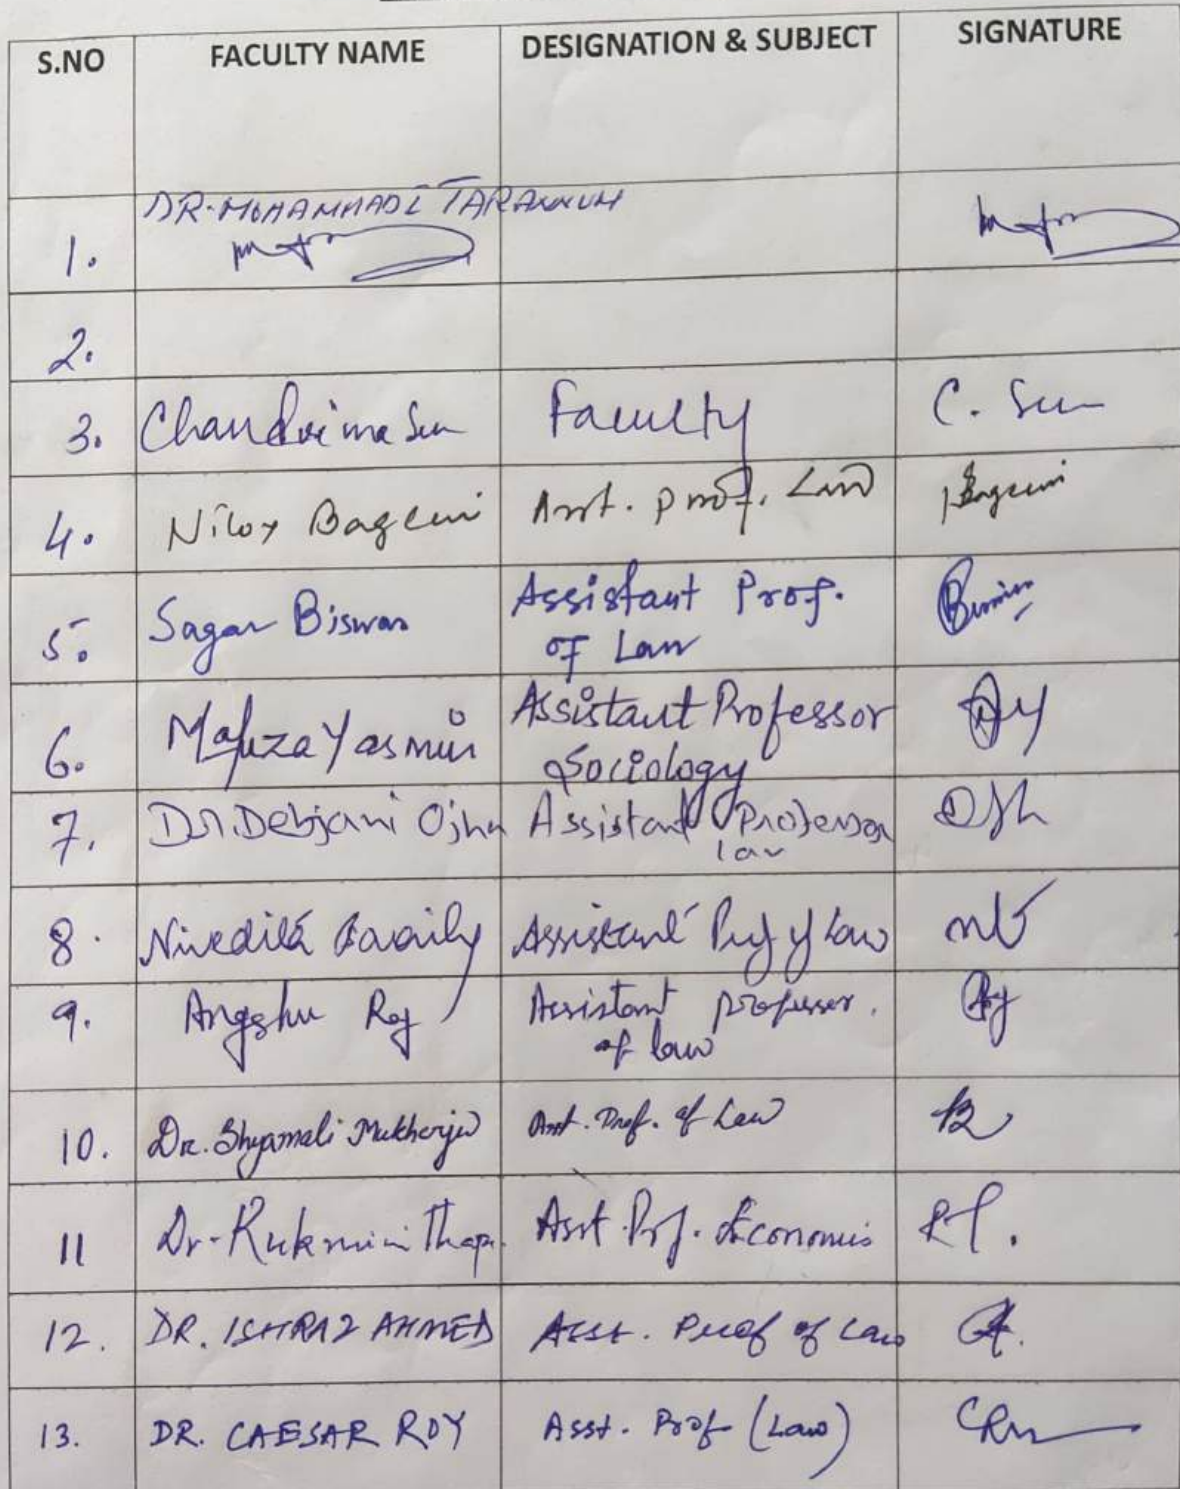 S.NO FACULTY NAME DESIGNATION & SUBJECT SIGNATURE
1. DR. MOHAMMADI TARANNUM
2.
3. Chandrima Sen Faculty C. Sen
4. Niloy Bagchi Asst. Prof. Law Bagchi
5. Sagar Biswas Assistant Prof.
of Law Biswas
6. Mafuza Yasmin Assistant Professor
Sociology
7. Dr. Debjani Ojha Assistant Professor
law
8. Nivedita Assistant Prof of Law
9. Angshu Roy Assistant professor.
of law
10. Dr. Shyamali Mukherjee Asst. Prof. of Law
11 Dr. Rukmini Thapa Asst. Prof. Economics RT.
12. DR. ISHRAZ AHMED Asst. Prof of Law
13. DR. CAESAR ROY Asst. Prof (Law)